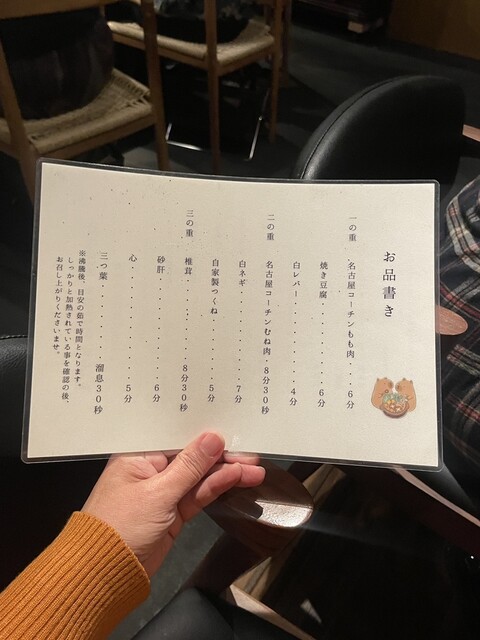 お品書き
一の重 名古屋コーチンもも肉・・・・6分
焼き豆腐・・・・・・・・・6分
白レバー・・・・・・・・・4分
二の重 名古屋コーチンむね肉・8分30秒
白ネギ・・・・・・・・・・7分
自家製つくね・・・・・・・5分
三の重 椎茸・・・・・・・・8分30秒
砂肝・・・・・・・・・・・6分
心・・・・・・・・・・・・5分
三つ葉・・・・・・・・溜息30秒
※沸騰後、目安の茹で時間となります。
しっかりと加熱されている事を確認の後、
お召し上がりくださいませ。